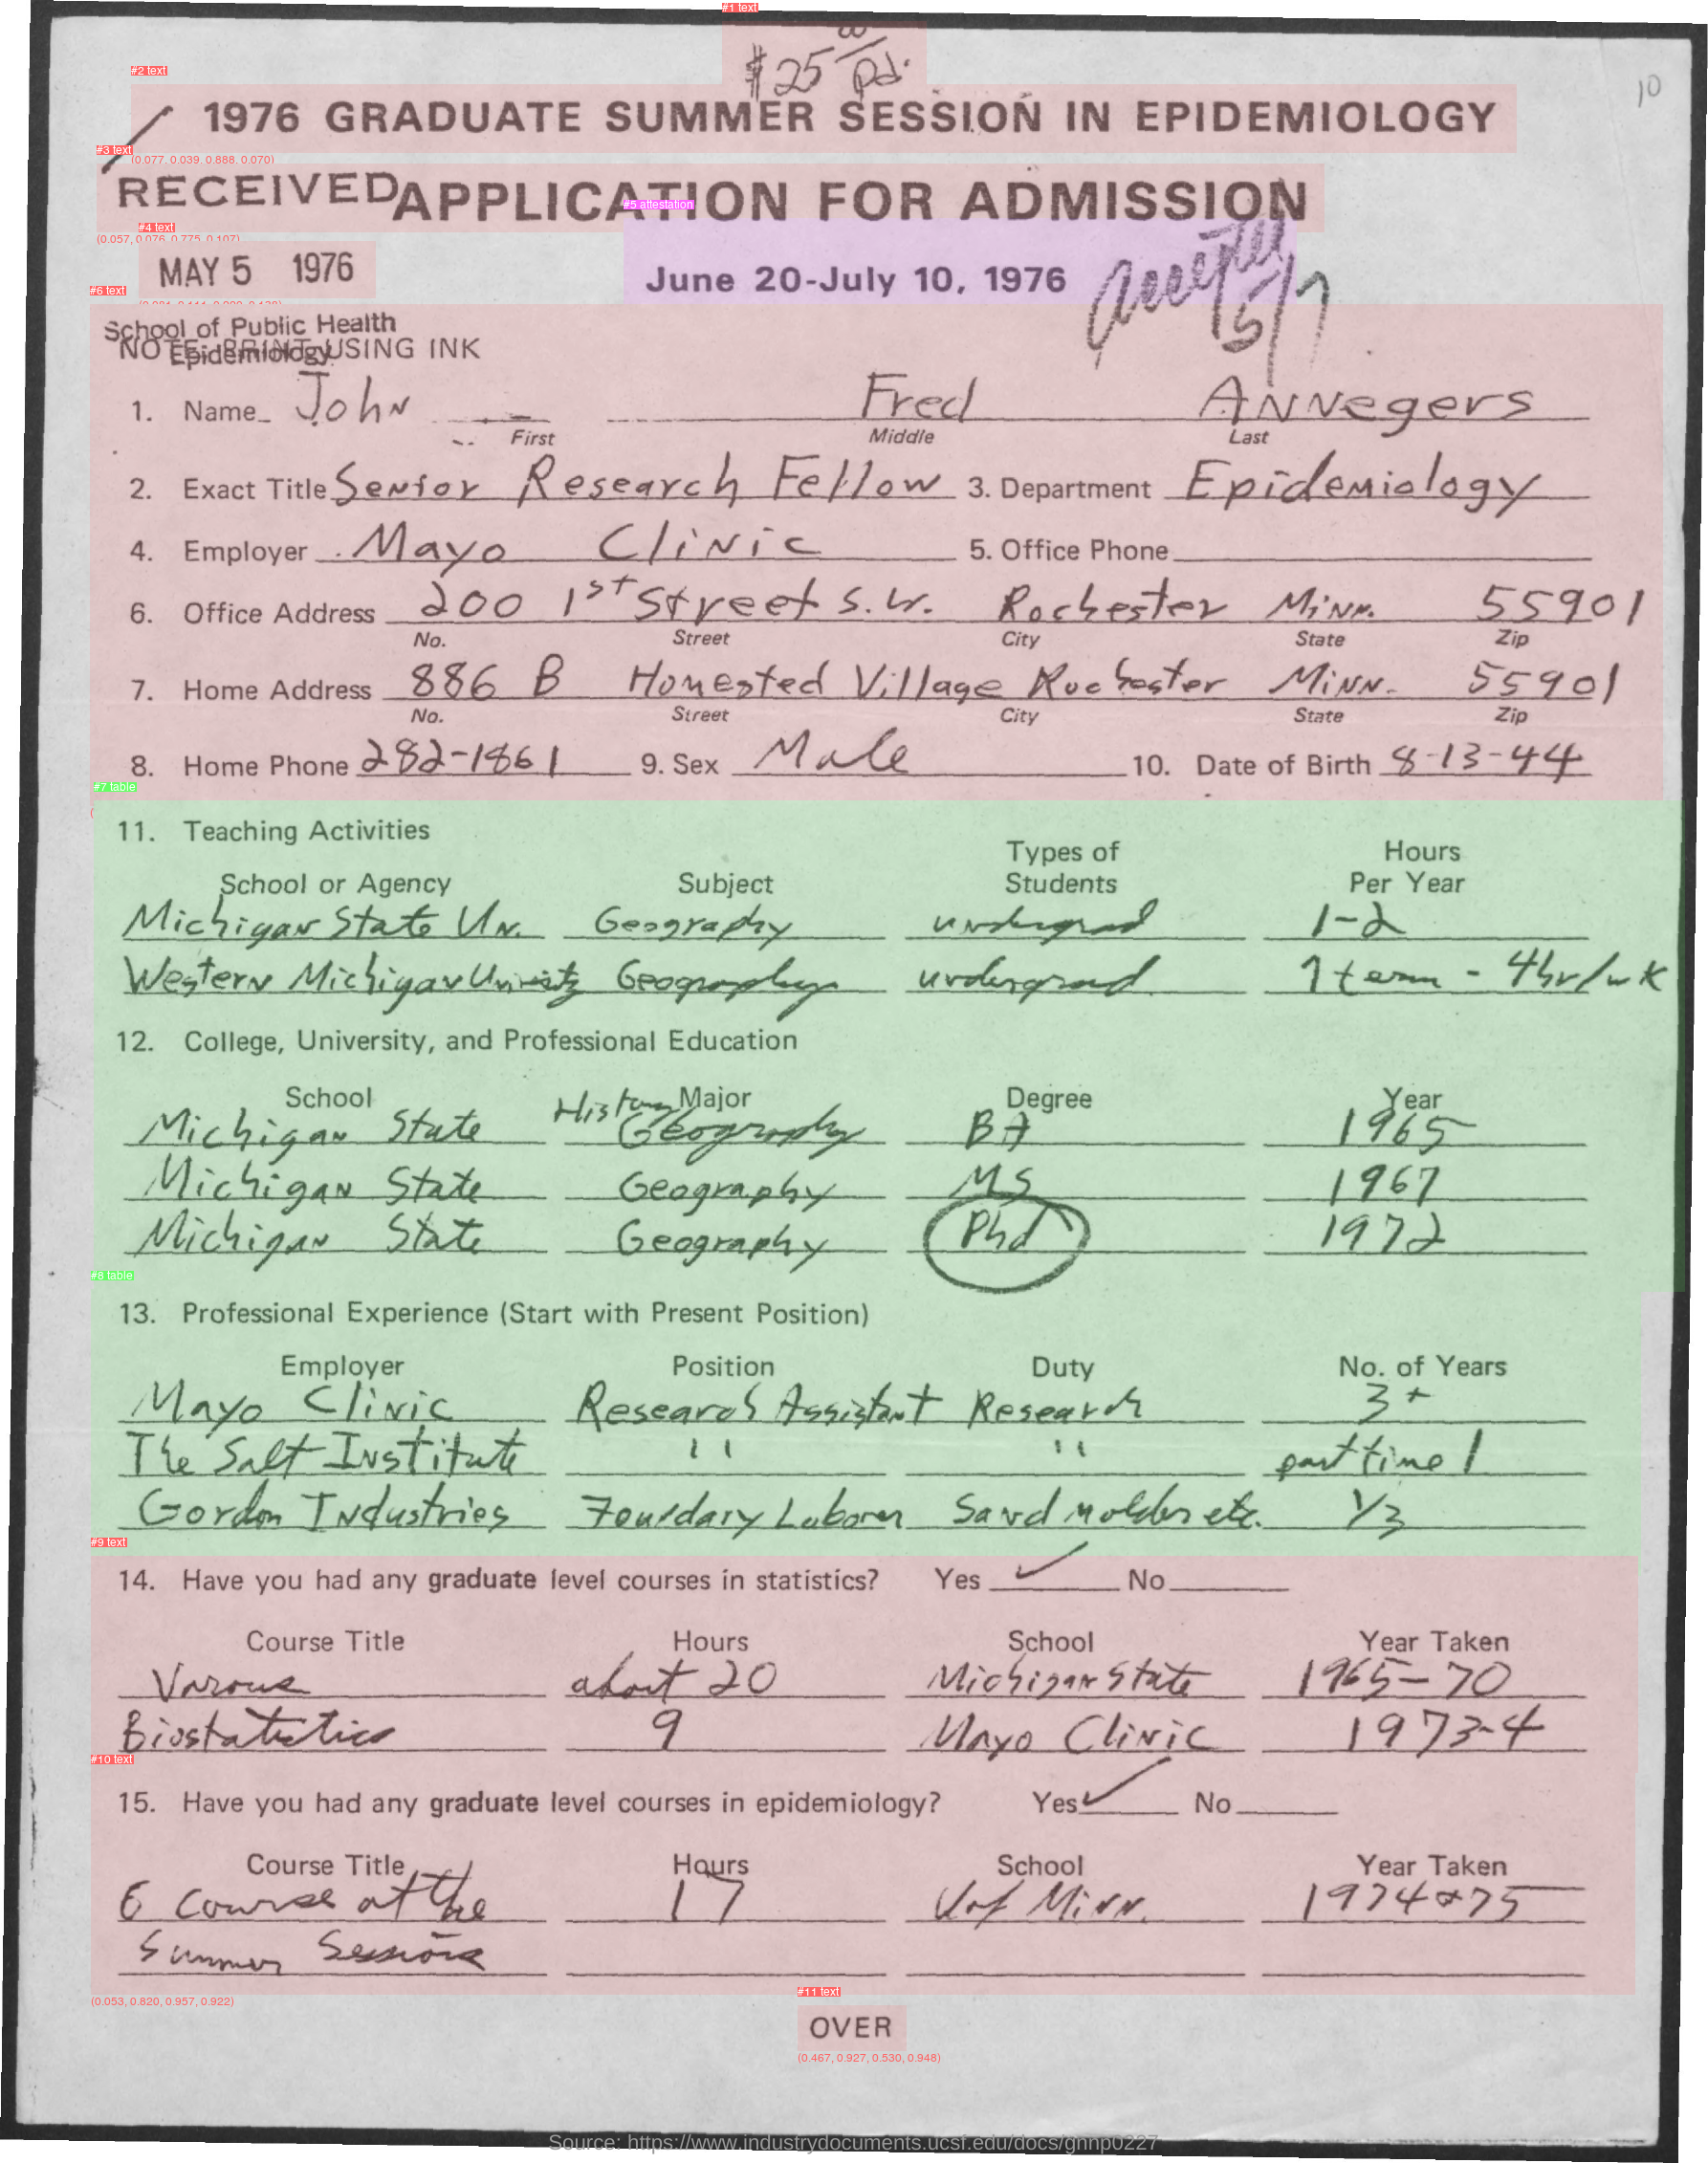 $25 00 pd.
10
1976 GRADUATE SUMMER SESSION IN EPIDEMIOLOGY
RECEIVED APPLICATION FOR ADMISSION
MAY 5 1976
June 20-July 10, 1976
accepted 5/7
School of Public Health
Epidemiology
NOTE: PRINT USING INK
1. Name John Fred ANNegers
First Middle Last
2. Exact Title Senior Research Fellow 3. Department Epidemiology
4. Employer Mayo Clinic 5. Office Phone
6. Office Address 200 1st Street S.W. Rochester Minn. 55901
No. Street City State Zip
7. Home Address 886 B Homested Village Rochester Minn. 55901
No. Street City State Zip
8. Home Phone 282-1861 9. Sex Male 10. Date of Birth 8-13-44
11. Teaching Activities
School or Agency Subject Types of Students Hours Per Year
Michigan State Un. Geography undergrad 1-2
Western Michigan University Geography undergrad 1 term - 4hr/wk
12. College, University, and Professional Education
School Major Degree Year
Michigan State History Geography BA 1965
Michigan State Geography MS 1967
Michigan State Geography Phd 1972
13. Professional Experience (Start with Present Position)
Employer Position Duty No. of Years
Mayo Clinic Research Assistant Research 3+
The Salt Institute " " part time 1
Gordon Industries Foundary Laborer Sand molder etc. 1/3
14. Have you had any graduate level courses in statistics? Yes ✓ No
Course Title Hours School Year Taken
Varous about 20 Michigan State 1965-70
Biostatistics 9 Mayo Clinic 1973-4
15. Have you had any graduate level courses in epidemiology? Yes ✓ No
Course Title Hours School Year Taken
6 Course at the 17 U of Minn. 1974 & 75
Summer Sessions
OVER
Source: https://www.industrydocuments.ucsf.edu/docs/gnnp0227
#1 text
#2 text
(0.077, 0.039, 0.888, 0.070)
#3 text
(0.057, 0.076, 0.775, 0.107)
#4 text
#5 attestation
#6 text
#7 table
#8 table
#9 text
#10 text
(0.053, 0.820, 0.957, 0.922)
#11 text
(0.467, 0.927, 0.530, 0.948)